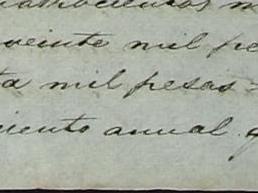 veinte mil pe
ta mil pesos
ciento anual